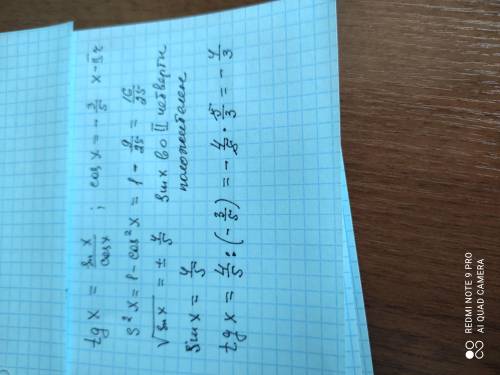 tg x = sin x / cos x ; cos x = - 3/5 x -
S²x = 1 - cos²x = 1 - 9/25 = 16/25
√sin x = ± 4/5 sin x во II четверти
положителен
sin x = 4/5
tg x = 4/5 : (- 3/5) = - 4/5 · 5/3 = - 4/3
REDMI NOTE 9 PRO
AI QUAD CAMERA